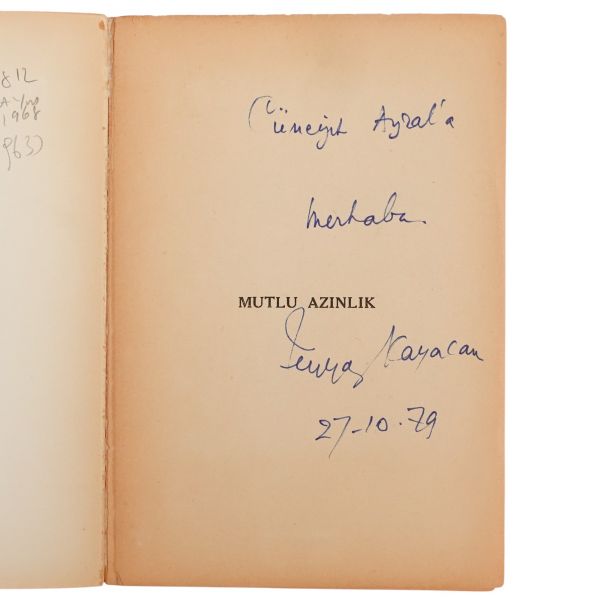 812
1968
963)
Cüneyt Ayral'a
Merhaba
MUTLU AZINLIK
Feyyaz Kayacan
27-10-79